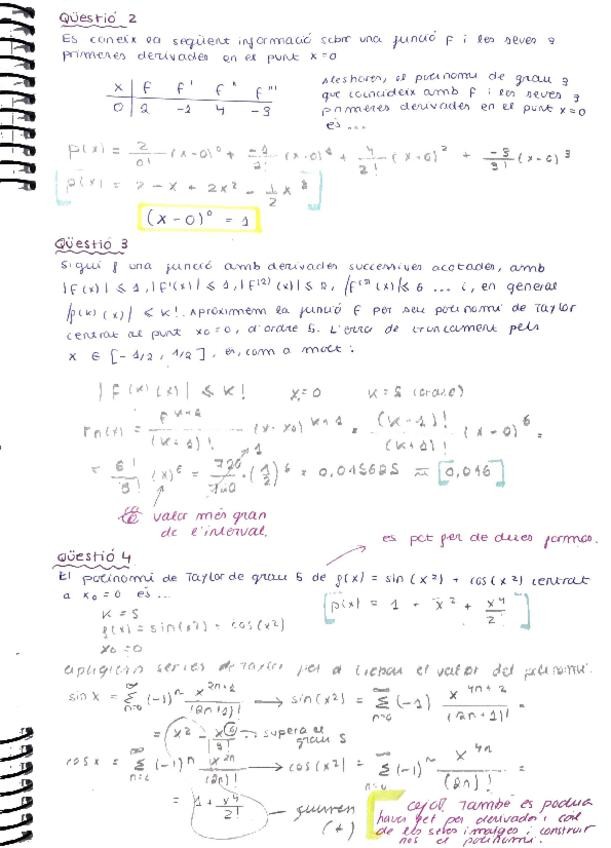 Qüestió 2
Es coneix la següent informació sobre una funció f i les seves 3
primeres derivades en el punt x=0
x f f' f'' f'''
0 2 -1 4 -3
aleshores, el polinomi de grau 3
que coincideix amb f i les seves 3
primeres derivades en el punt x=0
és ...
p(x) = 2/0! (x-0)⁰ + -1/1! (x-0)¹ + 4/2! (x-0)² + -3/3! (x-0)³
p(x) = 2 - x + 2x² - 1/2 x³
(x-0)⁰ = 1
Qüestió 3
Sigui f una funció amb derivades successives acotades, amb
|f(x)| ≤ 1, |f'(x)| ≤ 1, |f⁽²⁾(x)| ≤ 2, |f⁽³⁾(x)| ≤ 6 ... i, en general
|f⁽ᵏ⁾(x)| ≤ k!. Aproximem la funció f per seu polinomi de Taylor
centrat al punt x0=0, d'ordre 5. L'error de truncament pels
x ∈ [-1/2, 1/2], és, com a molt:
|f⁽ᵏ⁾(x)| ≤ k! x=0 k=5 (grado)
rn(x) = f^(k+1)/(k+1)! (x-x0)^(k+1) = (k+1)!/(k+1)! (x-0)⁶ =
(x)⁶ = 720/720 · (1/2)⁶ = 0,015625 ≈ 0,016
1
valor més gran
de l'interval.
Qüestió 4
es pot fer de dues formes.
El polinomi de Taylor de grau 5 de f(x) = sin(x²) + cos(x²) centrat
a x0=0 és ...
p(x) = 1 + x² + x⁴/2!
k = 5
f(x) = sin(x²) + cos(x²)
x0 = 0
apliquem sèries de Taylor per a trobar el valor del polinomi.
sin x = ∑ n=0 ∞ (-1)ⁿ x^(2n+1)/(2n+1)! → sin(x²) = ∑ n=0 ∞ (-1) x^(4n+2)/(2n+1)! =
= x² - x⁶/3! → supera el
grau 5
cos x = ∑ ∞ (-1)ⁿ x^(2n)/(2n)! → cos(x²) = ∑ n=0 ∞ (-1)ⁿ x^(4n)/(2n)! =
= 1 + x⁴/2!
(+)
També es podria
haver fet per derivades i
de les seves imatges i construir
nos el polinomi.